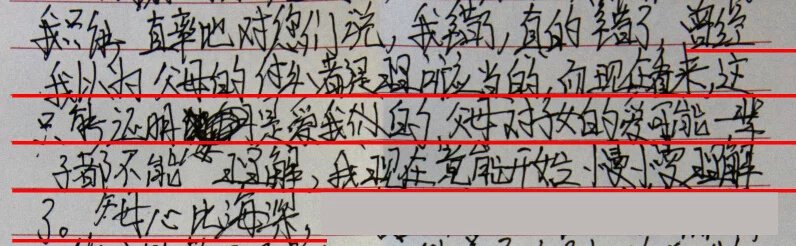 我只能直率地对您们说，我错了，真的错了，曾经
我以为父母的付出都是理所应当的，而现在看来，这
只能证明是爱我们的，父母对子女的爱可能一辈
子都不能理解，我现在竟能开始慢慢理解
了。父母心比海深，